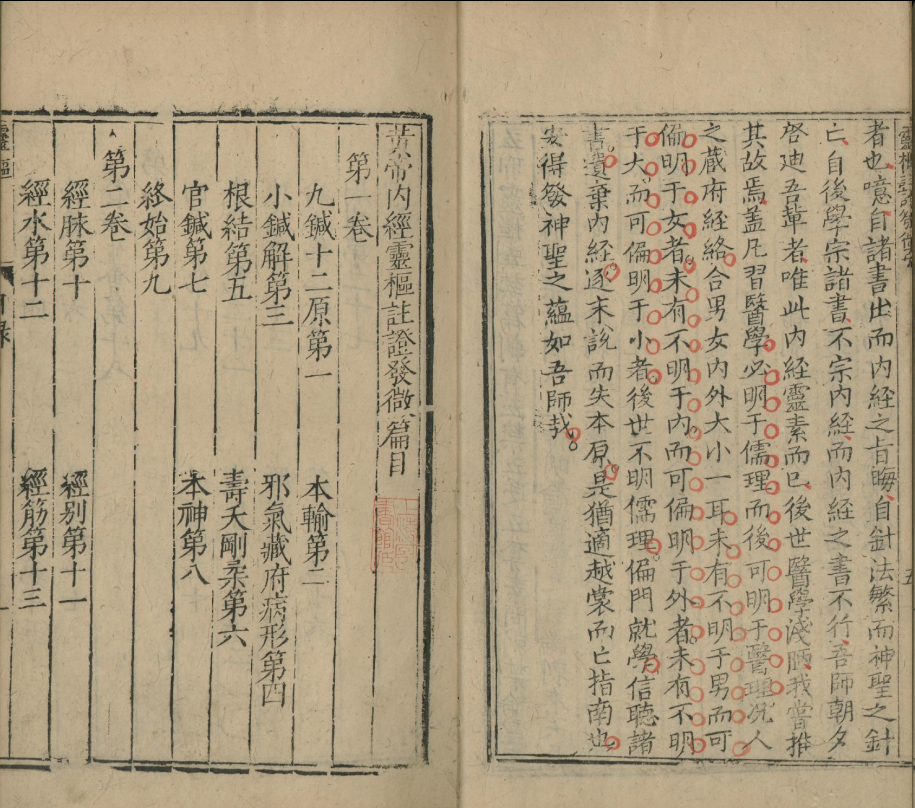 者也噫自諸書出而內經之旨晦自針法繁而神聖之針
亡自後學宗諸書不宗內經而內經之書不行吾師朝夕
啓迪吾輩者唯此內經靈素而已後世醫學淺陋我嘗推
其故焉蓋凡習醫學必明于儒理而後可明于醫理况人
之藏府經絡合男女內外大小一耳未有不明于男而可
偏明于女者未有不明于內而可偏明于外者未有不明
于大而可偏明于小者後世不明儒理偏門就學信聽諸
書遺棄內經逐末說而失本原是猶適越裳而亡指南也
安得發神聖之蘊如吾師哉
黃帝內經靈樞註證發微篇目
第一卷
九鍼十二原第一 本輸第二
小鍼解第三 邪氣藏府病形第四
根結第五 壽夭剛柔第六
官鍼第七 本神第八
終始第九
第二卷
經脉第十 經别第十一
經水第十二 經筋第十三
靈樞 目錄 一